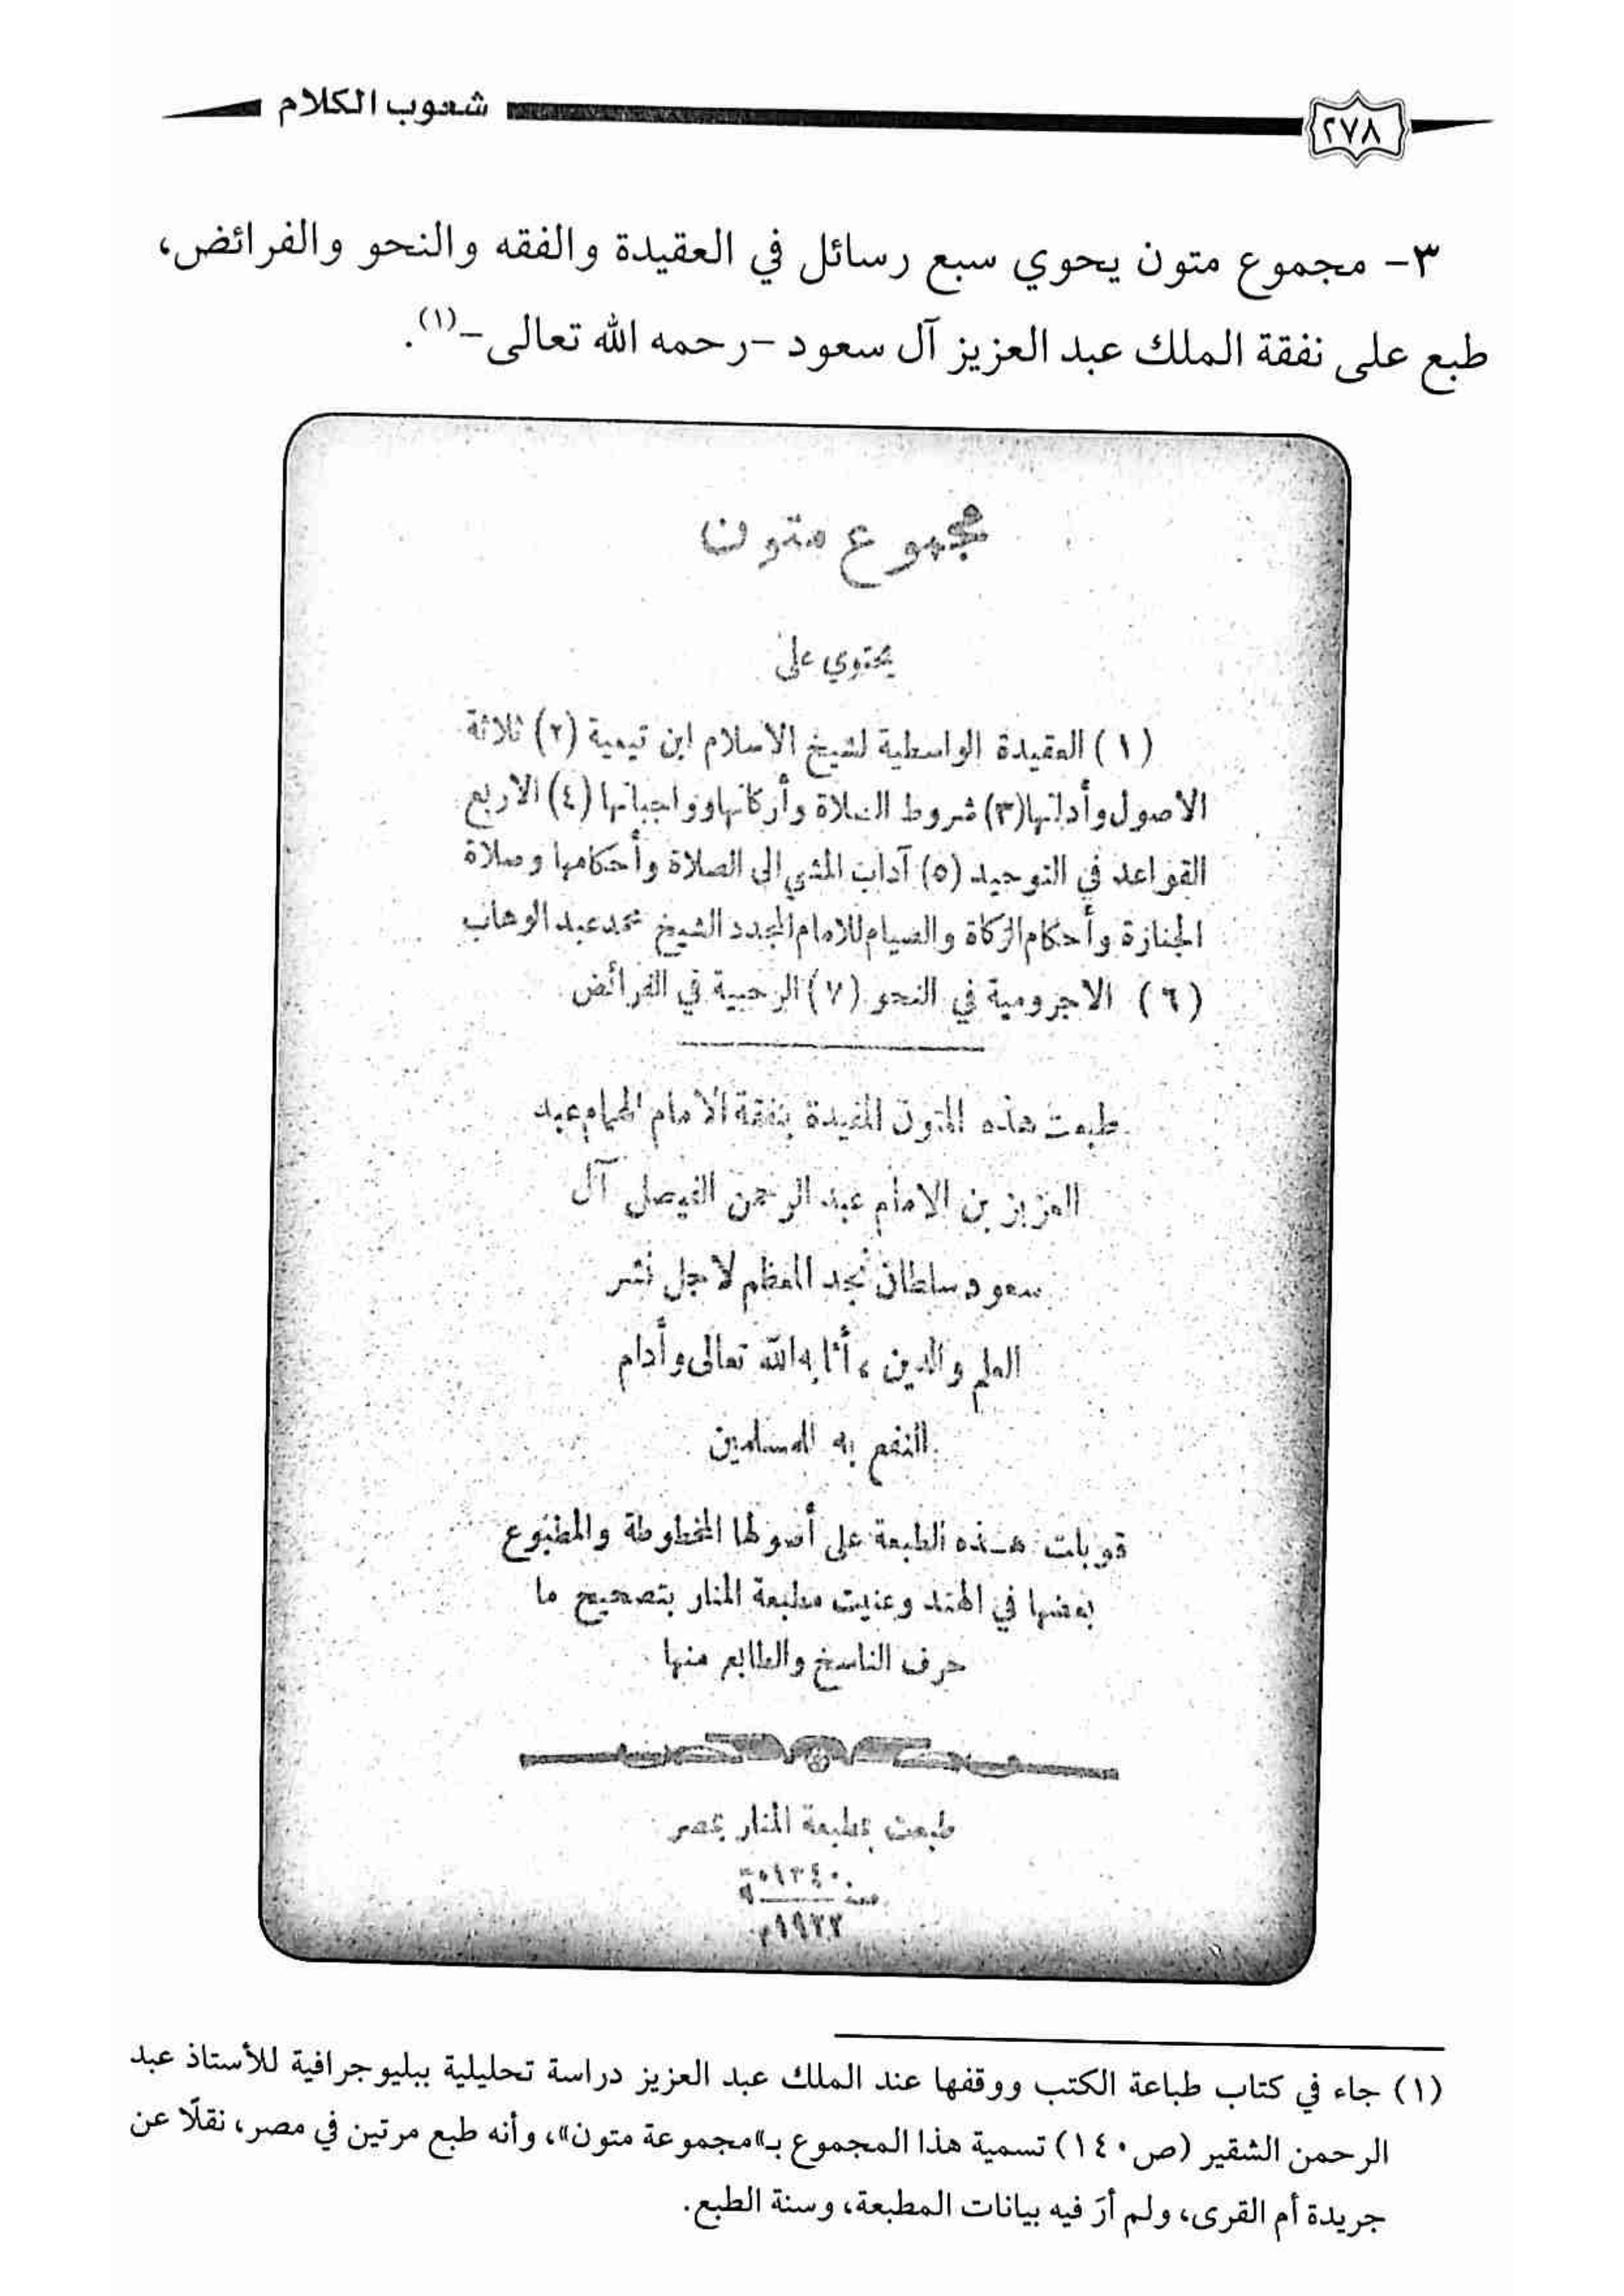 شعوب الكلام
٢٧٨
٣- مجموع متون يحوي سبع رسائل في العقيدة والفقه والنحو والفرائض،
طبع على نفقة الملك عبد العزيز آل سعود -رحمه الله تعالى-(١).
مجموع متون
يحتوي على
(١) العقيدة الواسطية لشيخ الاسلام ابن تيمية (٢) ثلاثة
الاصول وأدلتها (٣) شروط الصلاة وأركانها وواجباتها (٤) الاربع
القواعد في التوحيد (٥) آداب المشي الى الصلاة وأحكامها وصلاة
الجنازة وأحكام الزكاة والصيام للامام المجدد الشيخ محمد عبد الوهاب
(٦) الاجرومية في النحو (٧) الرحبية في الفرائض
طبعت هذه المتون المفيدة بنفقة الامام الهمام عبد
العزيز بن الامام عبد الرحمن الفيصل آل
سعود سلطان نجد المعظم لاجل نشر
العلم والدين، أثابه الله تعالى وأدام
النفع به للمسلمين
قوبلت هذه الطبعة على أصولها المخطوطة والمطبوع
بعضها في الهند وعنيت مطبعة المنار بتصحيح ما
حرف الناسخ والطابع منها
طبعت بمطبعة المنار بمصر
سنة ١٣٤٠هـ
١٩٢٢م
(١) جاء في كتاب طباعة الكتب ووقفها عند الملك عبد العزيز دراسة تحليلية ببليوجرافية للأستاذ عبد
الرحمن الشقير (ص١٤٠) تسمية هذا المجموع بـ«مجموعة متون»، وأنه طبع مرتين في مصر، نقلًا عن
جريدة أم القرى، ولم أرَ فيه بيانات المطبعة، وسنة الطبع.